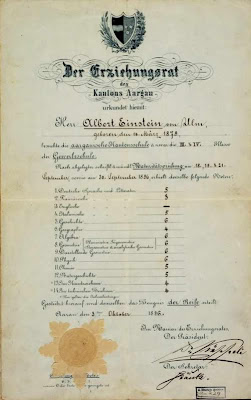 Der Erziehungsrat
des
Kantons Aargau
urkundet hiemit:
Herr Albert Einstein von Ulm,
geboren den 14. März 1879,
besuchte die aargauische Kantonsschule & zwar die III. & IV. Klasse
der Gewerbeschule.
Nach abgelegter schriftl. & mündl. Maturitätsprüfung am 18. 19. & 21.
September, sowie am 30. September 1896, erhielt derselbe folgende Noten:
1. Deutsche Sprache und Litteratur 5
2. Französische 3
3. Englische —
4. Italienische 5
5. Geschichte 6
6. Geographie 4
7. Algebra 6
8. Geometrie 6
9. Darstellende Geometrie 6
10. Physik 6
11. Chemie 5
12. Naturgeschichte 5
13. Im Kunstzeichnen 4
14. Im technischen Zeichnen 4
Gestützt hierauf wird demselben das Zeugnis der Reife erteilt.
Aarau den 3ten Oktober 1896.
Im Namen des Erziehungsrates,
Der Präsident:
Der Sekretär: